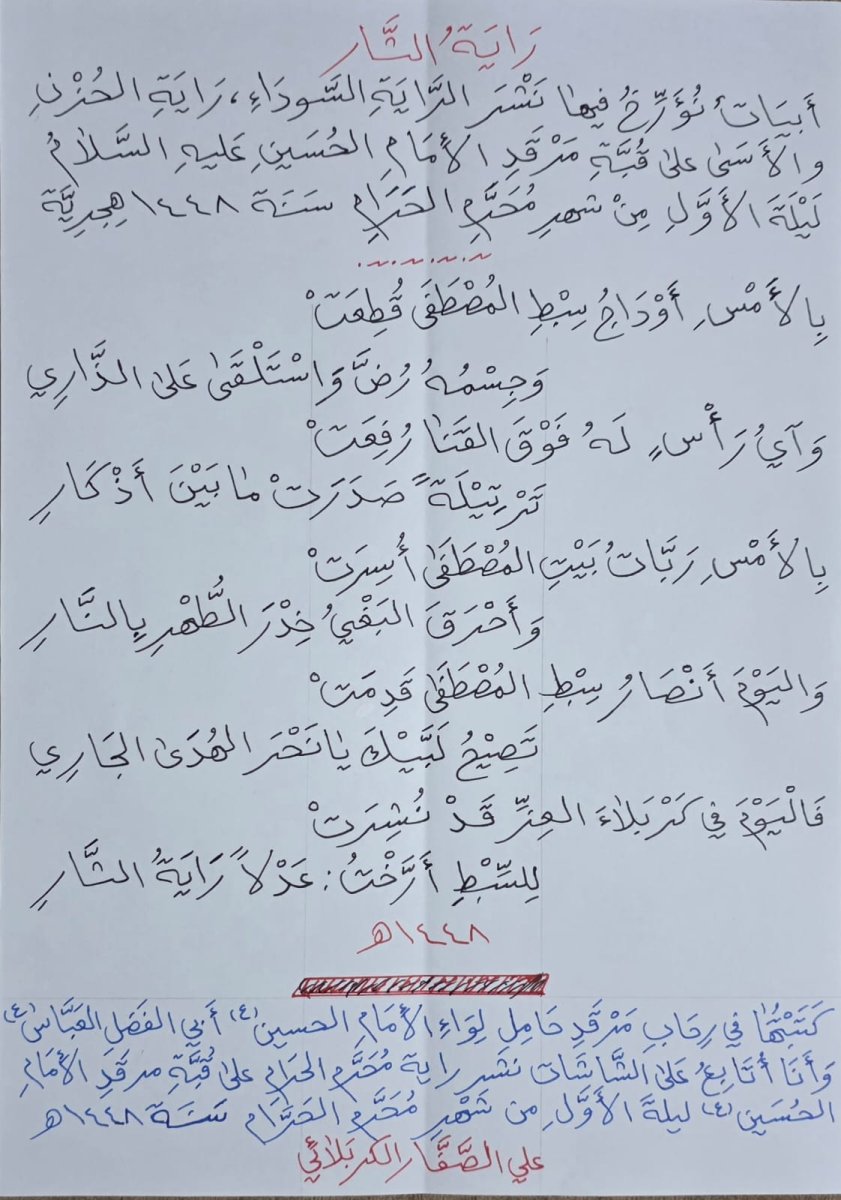 رَايَةُ الثَّارِ
أَبيَاتٌ نُؤَرِّخُ فيها نَشْرَ الرَّايَةِ السَّودَاءِ، رَايَةِ الحُزْنِ
والأَسَىٰ عَلىٰ قُبَّةِ مَرْقَدِ الأِمَامِ الحُسَينِ عَليهِ السَّلَامُ
لَيْلَةَ الأَوَّلِ مِنْ شهرِ مُحَرَّمِ الحَرَامِ سَنَة ١٤٤٨هِجرِيَّة
بِالأَمْسِ أَوْدَاجُ سِبْطِ المُصْطَفَىٰ قُطِعَتْ
وَجِسْمُهُ رُضَّ وَاسْتَلْقَىٰ عَلىٰ الذَّارِي
وَآيُ رَأْسٍ لَهُ فَوْقَ القَنَا رُفِعَتْ
تَرْتِيْلَةً صَدَرَتْ مَا بَيْنَ أَذْكَارِ
بِالأَمْسِ رَبَّاتُ بَيْتِ المُصْطَفَىٰ أُسِرَتْ
وَأَحْرَقَ البَغْيُ خِدْرَ الطُّهْرِ بِالنَّارِ
وَاليَوْمَ أَنْصَارُ سِبْطِ المُصْطَفَىٰ قَدِمَتْ
تَصِيْحُ لَبَّيْكَ يَا نَحْرَ الهُدَىٰ الجَارِي
فَالْيَوْمَ فِي كَرْبَلَاءَ العِزِّ قَدْ نُشِرَتْ
لِلسِّبْطِ أَرَّخْتُ: عَدْلاً رَايَةُ الثَّارِ
١٤٤٨هـ
كَتَبْتُهَا فِي رِحَابِ مَرْقَدِ حَامِلِ لِوَاءِ الأِمَامِ الحسين (ع) أَبِي الفَضلِ العَبَّاس (ع)
وَأَنَا أُتَابِعُ عَلىٰ الشَّاشَاتِ نَشرَ رايةِ مُحَرَّمِ الحَرامِ عَلىٰ قُبَّةِ مرقَدِ الأِمَامِ
الحُسَين (ع) ليلةَ الأَوَّلِ مِن شَهْرِ مُحَرَّمِ الحَرَامِ سَنَة ١٤٤٨هـ
علي الصَّفَّار الكربَلَائِي